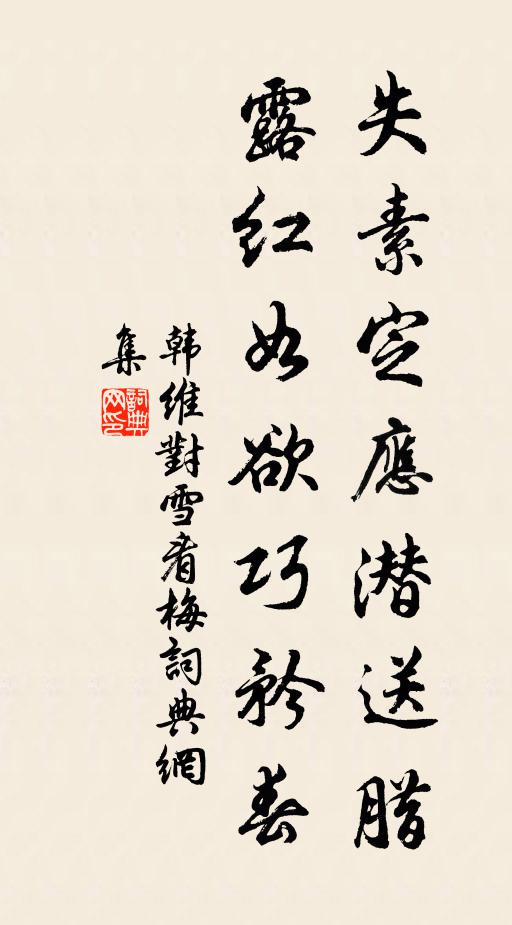 失素定應潜送腊
露红如欲巧矜春
韩维對雪看梅詞典網
集
詞典网印